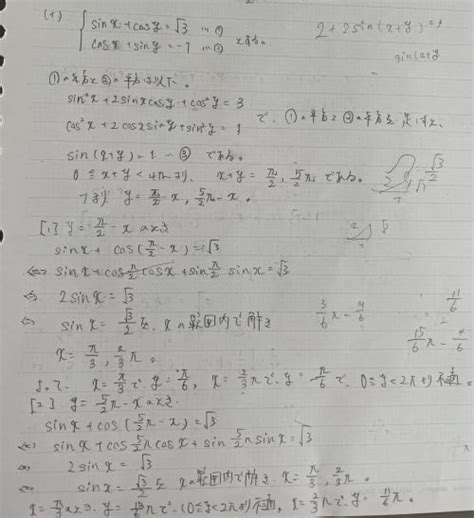 (1) { sin x + cos y = √3 … ①
cos x + sin y = -1 … ② とする。
2 + 2sin(x+y) = 4
sin(x+y)
①の平方と②の平方は以下。
sin²x + 2sin x cos y + cos²y = 3
cos²x + 2cos x sin y + sin²y = 1 で、①の平方と②の平方を足すと、
sin(x+y) = 1 … ③ である。
0 ≦ x+y < 4π より、 x+y = π/2, 5/2π である。
つまり y = π/2 - x, 5/2π - x 。
[1] y = π/2 - x のとき
sin x + cos(π/2 - x) = √3
⇔ sin x + cos π/2 cos x + sin π/2 sin x = √3
⇔ 2 sin x = √3
⇔ sin x = √3/2 を、xの範囲内で解き
x = π/3, 2/3π 。
3/6π - 4/6
11/6
15/6π - 4/6
よって、 x = π/3 で y = π/6, x = 2/3π で y = -π/6 で、0≦y<2πより不適。
[2] y = 5/2π - x のとき
sin x + cos(5/2π - x) = √3
⇔ sin x + cos 5/2π cos x + sin 5/2π sin x = √3
⇔ 2 sin x = √3
⇔ sin x = √3/2 を xの範囲内で解き、x = π/3, 2/3π 。
x = π/3 のとき y = 13/6π で (0≦y<2πより不適, x = 2/3π で y = 11/6π 。